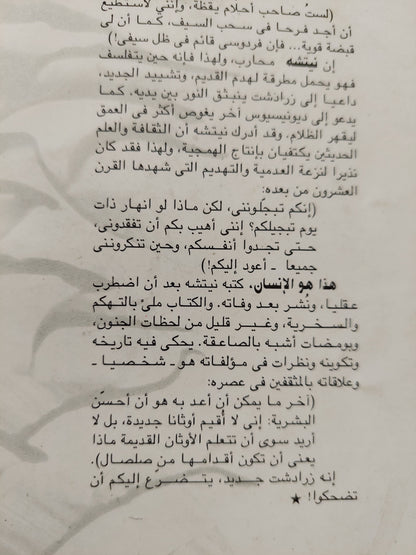 (لستُ صاحب أحلام يقظة، وإننى لأستطيع
أن أجـد فرحـا فى سحب السيف، كمـا أن لى
قبضة قوية... فإن فردوسى قائم فى ظل سيفى!)
إن نيتشه محارب، ولهذا فإنه حين يتفلسف
فهو يحمل مطرقة لهدم القديم، وتشييد الجديد،
داعيـا إلى زرادشت ينبثق النور بين يديه. كمـا
يدعو إلى ديونيسيوس آخر يغوص أكثر فى العمق
ليقهر الظلام. وقد أدرك نيتشه أن الثقافة والعلم
الحديثين يكتفيان بإنتاج الهمجية، ولهذا فقد كان
نذيرا لنزعة العدمية والتهديم التى شهدها القرن
العشرون من بعده:
(إنكم تبجلّوننى، لكن ماذا لو انهار ذات
يوم تبجيلكم؟ إننى أهيب بكم أن تفقدونى،
حتـى تجدوا أنفـسكم، وحين تنكروننى
جميعا - أعود إليكم!)
هذا هو الإنسان، كتبه نيتشه بعد أن اضطرب
عقليا، ونشر بعـد وفاته. والكتاب ملئ بالتهكم
والسـخرية، وغـيـر قليل من لحظات الجنون،
وبومضات أشبه بالصاعقة. يحكى فيه تاريخه
وتكوينه ونظرات فى مـؤلفاته هو - شـخصيـا -
وعلاقاته بالمثقفين فى عصره:
(آخر ما يمكن أن أعد به هو أن أحسّن
البشرية: إنى لا أُقيم أوثانا جديدة، بل لا
أريد سوى أن تتعلم الأوثان القديمة ماذا
يعنى أن تكون أقدامـهـا من صلصال).
إنه زرادشت جـديد، يـتـضـرع إليكم أن
تضحكوا! ★